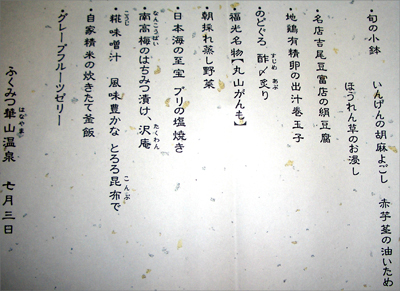 ・旬の小鉢　いんげんの胡麻よごし　赤芋茎の油いため
ほうれん草のお浸し
・名店吉尾豆富店の絹豆腐
・地鶏有精卵の出汁巻玉子
・のどぐろ　酢〆炙り
すじめ　あぶ
・福光名物【丸山がんも】
・朝採れ蒸し野菜
・日本海の至宝　ブリの塩焼き
・南高梅のはちみつ漬け、沢庵
なんこうばい　たくわん
・糀味噌汁　風味豊かな　とろろ昆布で
こうじ　こんぶ
・自家精米の炊きたて釜飯
・グレープフルーツゼリー
ふくみつ華山温泉　七月三日
はなやま